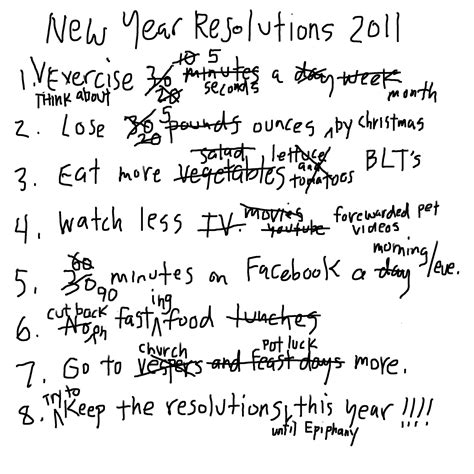 New Year Resolutions 2011
10 5
1. Exercise 30 minutes a day week
Think about 20 seconds month
5
2. Lose 30 pounds ounces by Christmas
20
salad lettuce and BLT's
3. Eat more vegetables tomatoes
movies forewarded pet
4. Watch less TV. youtube videos
60 morning/eve.
5. 30 minutes on Facebook a day
90
cut back ing
6. No fast food lunches
on
church pot luck
7. Go to vespers and feast days more.
Try to
8. Keep the resolutions, this year !!!!
until Epiphany